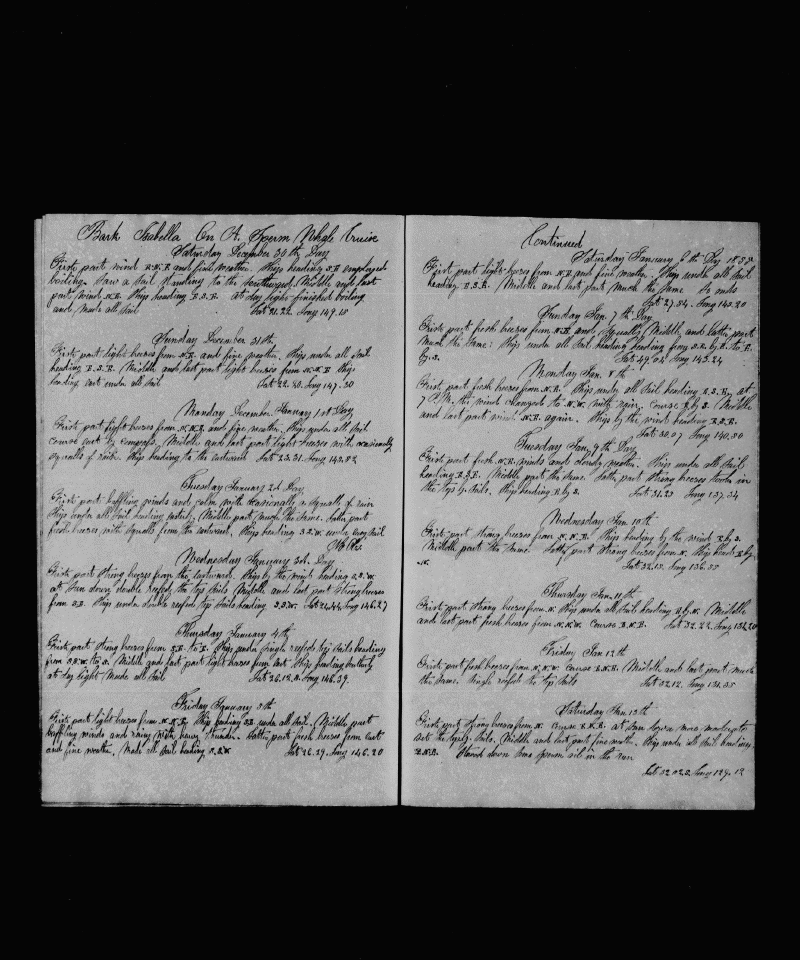 Bark Isabella On A. Sperm Whale Cruise
Saturday December 30th Day
First part wind N.N.E and fine weather. Ship heading S.E employed
boiling. Saw a sail standing to the Southward. Middle and last
part wind N.E. Ship heading E.S.E. at day light finished boiling
and made all sail Lat 21.22. Long 149.10
Sunday December 31th
First part light breeses from N.E. and fine weather. Ships under all sail
heading E.S.E. Middle and last part light breeses from N.N.E Ship
heading East under all sail Lat 22.20. Long 147.30
Monday December. January 1st Day
First part light breeses from N.N.E. and fine weather, Ships under all sail
course East by compass. Middle and last part light breeses with ocasionaly
squalls of rain. Ship heading to the eastward Lat 23.31. Long 143.52
Tuesday January 2d. Day
First part baffling winds and calm with ocasionaly a squall of rain
Ships under all sail heading Middle part much the same. Latter part
fresh breeses with squalls from the eastward, Ships heading S.S.W. under easy sail
No Obs.
Wednesday January 3d. Day
First part strong breeses from the eastward. Ships by the wind heading S.S.W.
at Sun down double reefed the top sails Middle and last part strong breeses
from S.E. Ships under double reefed top sails heading S.S.W. Lat 24.44 Long 146.27
Thursday January 4th
First part strong breeses from E.S. to E. Ships under single reefed top sails heading
from S.S.W. to S. Middle and last part light breses from East. Ships heading Southerly
at day light Made all sail Lat 26.13. Long 146.39.
Friday January 5th
First part light breeses from N.N.E. Ship heading S.E. under all sail. Middle part
baffling winds and rainy with heavy thunder. Latter part fresh breeses from East
and fine weather. Made all sail heading S.S.W Lat 26.29. Long 146.20
Continued
Saturday January 6th Day 1855
First part light breeses from N.E and fine weather. Ships under all sail
heading E.S.E. Middle and last part much the same So ends
Lat 27.54. Long 145.20
Sunday Jan. 7th Day
First part fresh breeses from N.E. and squally, Middle and latter part
much the same. Ships under all sail heading heading from S.E. by E. to E.
by. S. Lat Long 143.24
Monday Jan. 8th
First part fresh breeses from N.E. Ships under all sail heading E.S.E. at
7 P.M. the wind changed to N.W. with rain, course E by S. Middle
and last part wind N.E. again. Ships by the wind heading E.S.E.
Lat 30.07 Long 140.50
Tuesday Jan, 9th Day
First part fresh N.E. winds and cloudy weather. Ships under all sail
heading E.S.E. Middle part the same. Latter part strong breeses took in
the top G. Sails, Ships heading E by S. Lat 31.23 Long 137.34
Wednesday Jan. 10th
First part strong breeses from N.N.E. Ships heading by the wind E by S.
Middle part the same. Latter part strong breeses from N. Ship heads E by
N. Lat 32.12. Long 136.55
Thursday Jan. 11th
First part strong breeses from N Ships under all sail heading E by N. Middle
and last part fresh breeses from N.N.W. Course E.N.E. Lat 32.22 Long 132.20
Friday Jan 12th
First part fresh breeses from N.N.W. Course E.N.E. Middle and last part much
the same. Single reefed the top sails Lat 32.12. Long 131.35
Saturday Jan, 13th
First part strong breeses from N. Course E.N.E. at Sun more moderate
sets the top g. sails. Middle and last part fine weather. Ships under all sail heading
E.N.E. Stowed down some sperm oil in the run
Lat 32.02 S Long 129.12